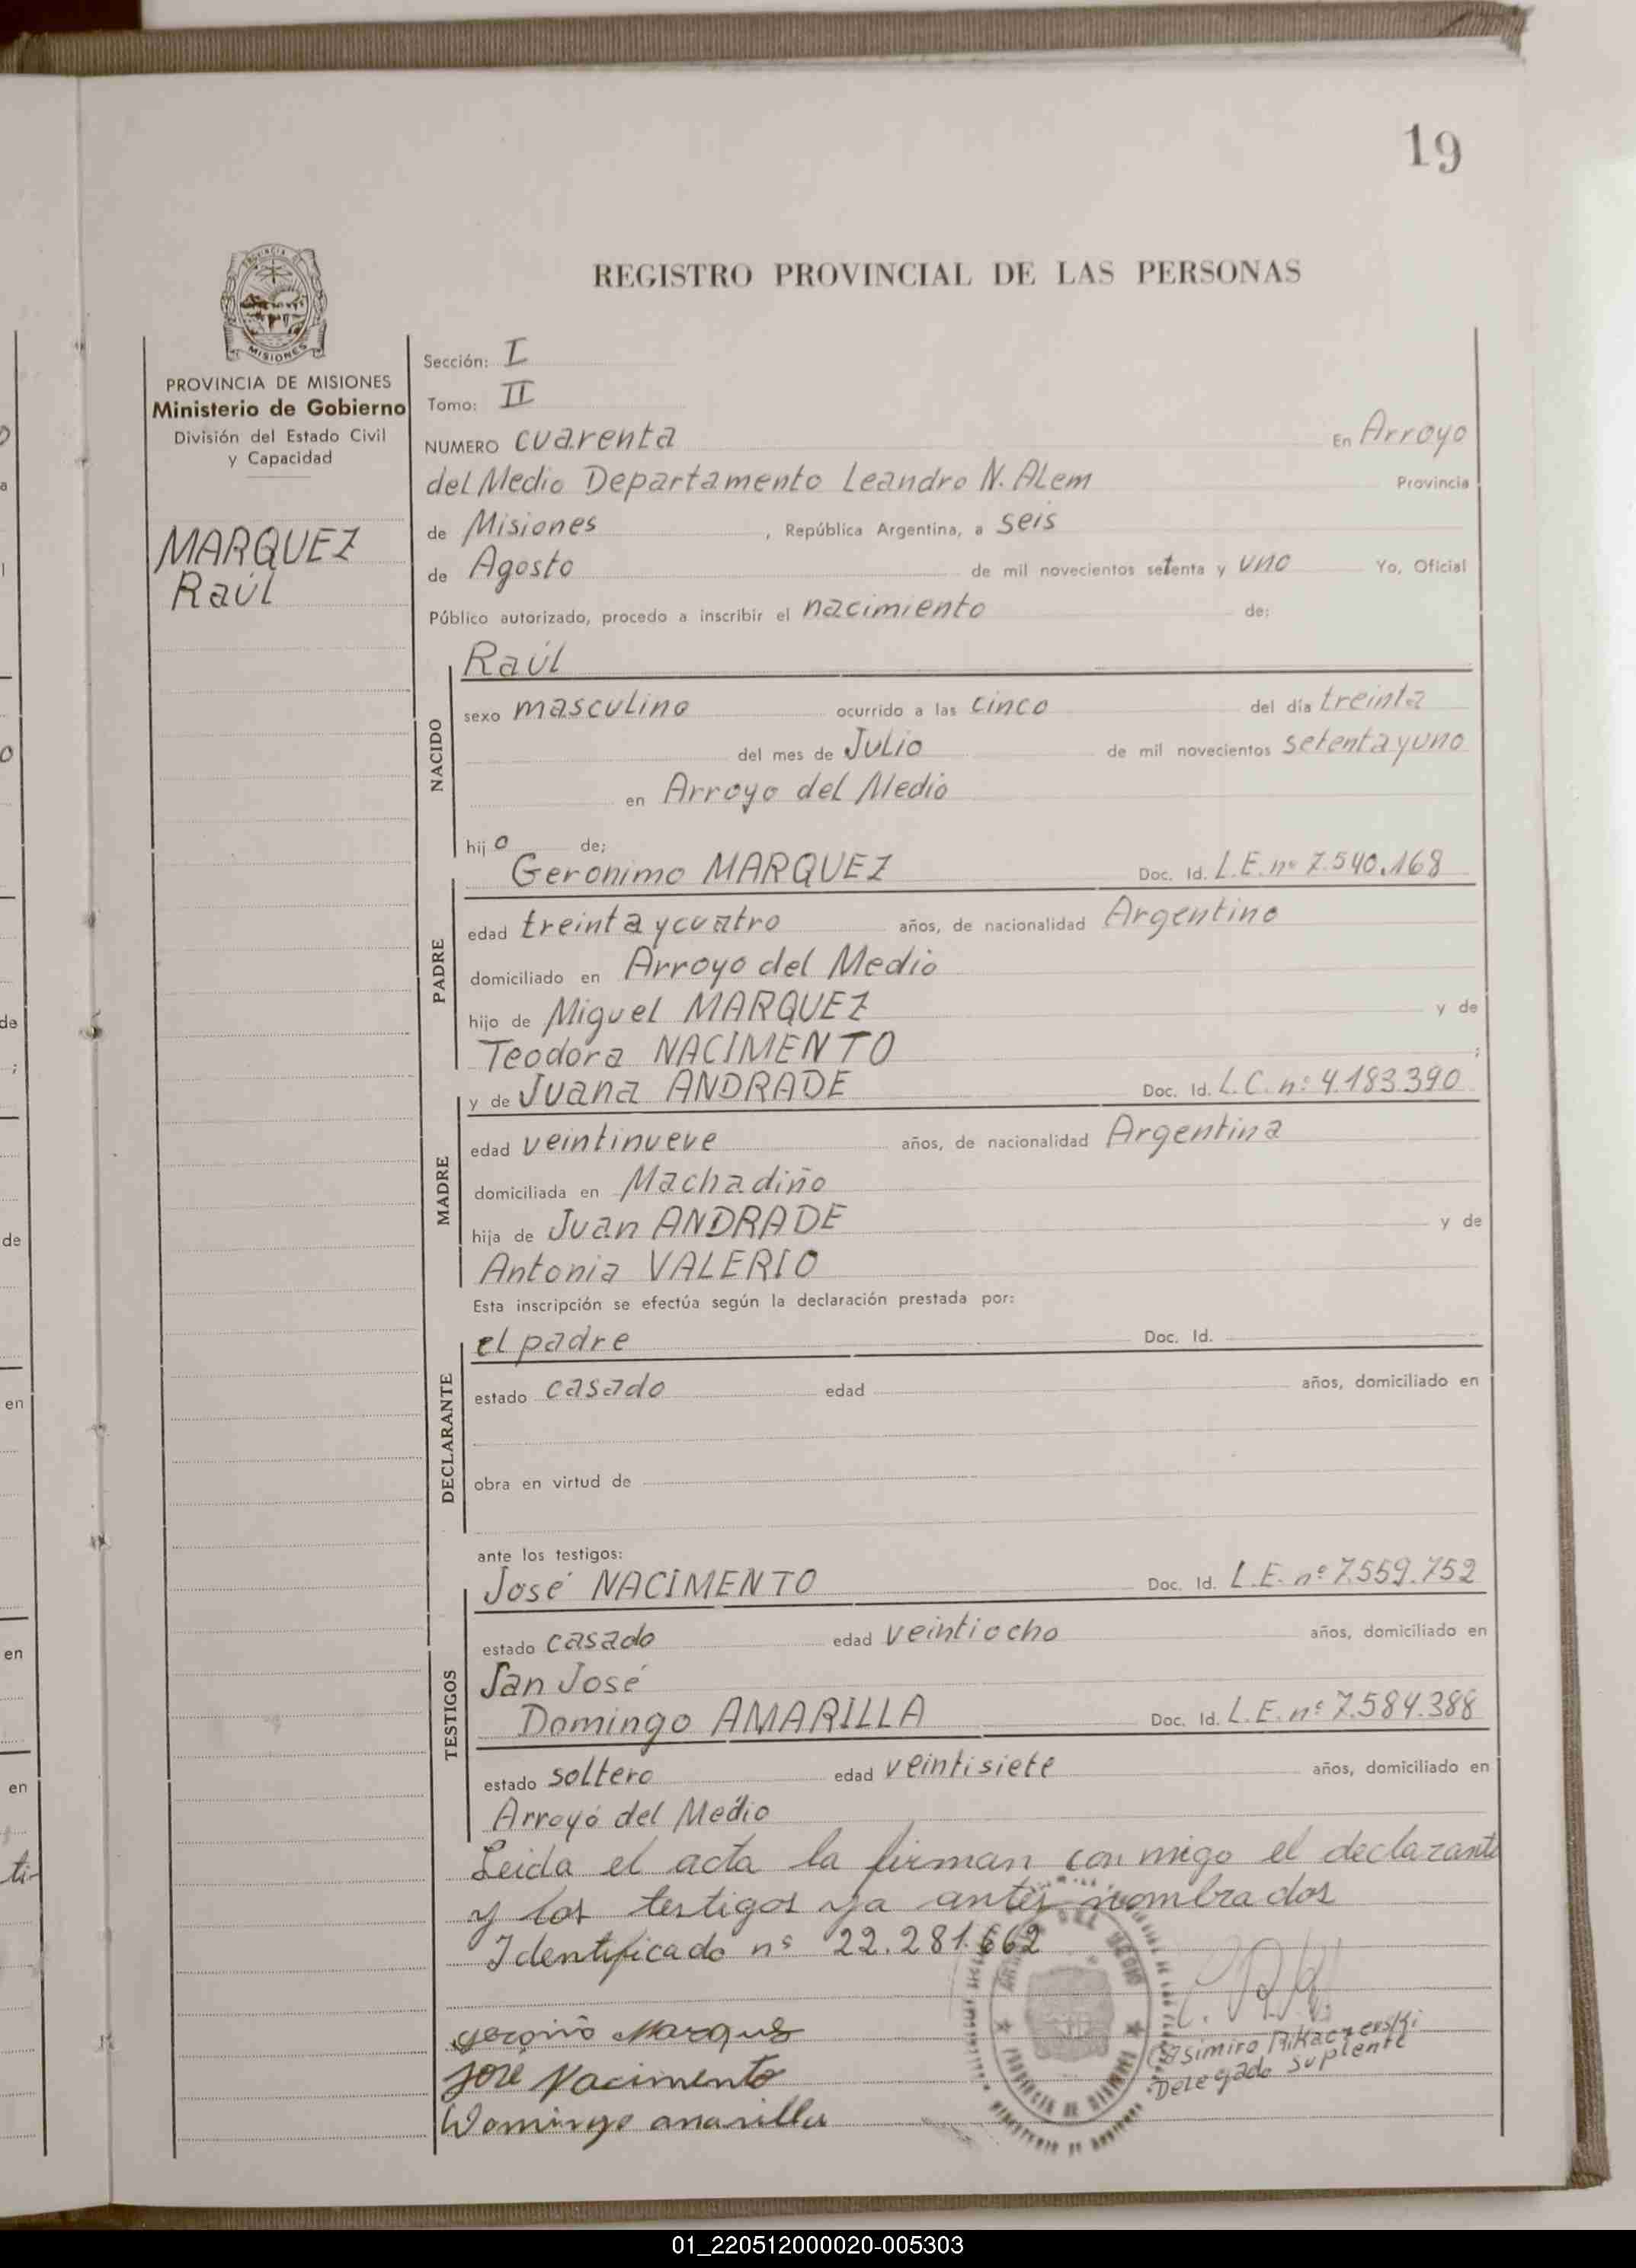 19
REGISTRO PROVINCIAL DE LAS PERSONAS
MISIONES
PROVINCIA DE MISIONES
Ministerio de Gobierno
División del Estado Civil
y Capacidad
MARQUEZ
Raúl
Sección: I
Tomo: II
NUMERO cuarenta En Arroyo
del Medio Departamento Leandro N. Alem Provincia
de Misiones , República Argentina, a seis
de Agosto de mil novecientos setenta y uno Yo, Oficial
Público autorizado, procedo a inscribir el nacimiento de:
NACIDO
Raúl
sexo masculino ocurrido a las cinco del día treinta
del mes de Julio de mil novecientos setenta y uno
en Arroyo del Medio
hijo de;
PADRE
Geronimo MARQUEZ Doc. Id. L.E. nº 7.540.168
edad treinta y cuatro años, de nacionalidad Argentino
domiciliado en Arroyo del Medio
hijo de Miguel MARQUEZ y de
Teodora NACIMENTO ;
MADRE
y de Juana ANDRADE Doc. Id. L.C. nº 4.183.390
edad veintinueve años, de nacionalidad Argentina
domiciliada en Machadiño
hija de Juan ANDRADE y de
Antonia VALERIO
Esta inscripción se efectúa según la declaración prestada por:
DECLARANTE
el padre Doc. Id.
estado casado edad años, domiciliado en
obra en virtud de
ante los testigos:
TESTIGOS
José NACIMENTO Doc. Id. L.E. nº 7.559.752
estado casado edad veintiocho años, domiciliado en
San José
Domingo AMARILLA Doc. Id. L.E. nº 7.584.388
estado soltero edad veintisiete años, domiciliado en
Arroyo del Medio
Leida el acta la firman conmigo el declarante
y los testigos ya antes nombrados
Identificado nº 22.281.662
Marques
José Nacimento
Domingo amarilla
Casimiro
Delegado suplente
PROVINCIA DE MISIONES
01_220512000020-005303